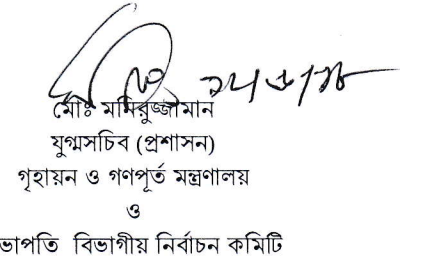 মোঃ মনিরুজ্জামান
যুগ্মসচিব (প্রশাসন)
গৃহায়ন ও গণপূর্ত মন্ত্রণালয়
ও
ভাপতি বিভাগীয় নির্বাচন কমিটি